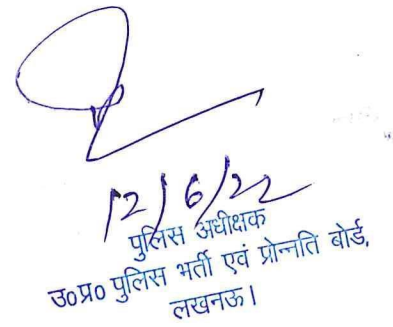 12/6/22
पुलिस अधीक्षक
उ०प्र० पुलिस भर्ती एवं प्रोन्नति बोर्ड,
लखनऊ।